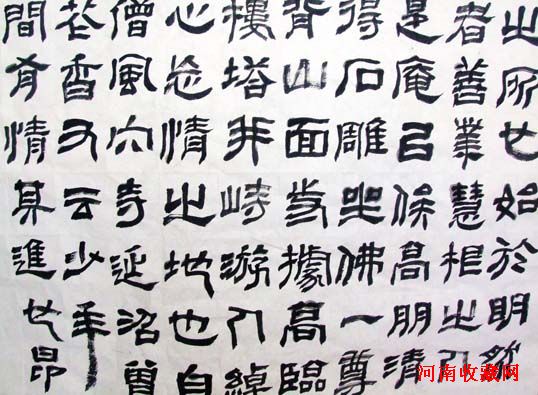 之所也始於明然
者善業慧相之引
是庵已候高朋清
得石雕坐佛一尊
背山面據高臨
樓塔并峙游人綽
心忘情之地也自
僧風穴寺延沼曾
花香又云少年
間有情其進也昂
河南收藏网